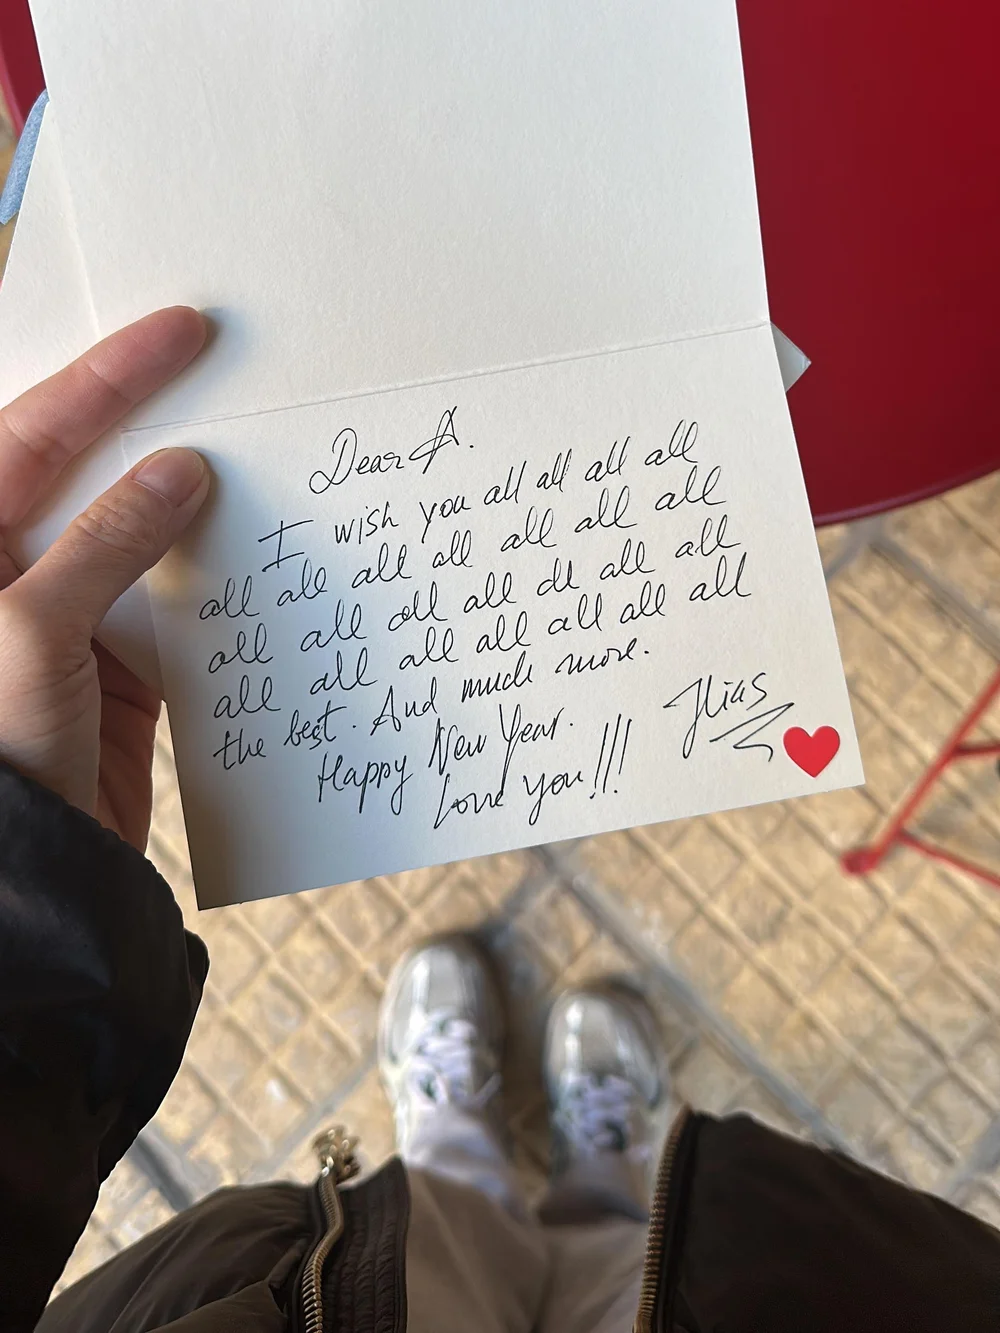 Dear A.
I wish you all all all all
all all all all all all all
all all all all all all all
all all all all all all all
the best. And much more.
Happy New Year.
Love you!!!
Ilias